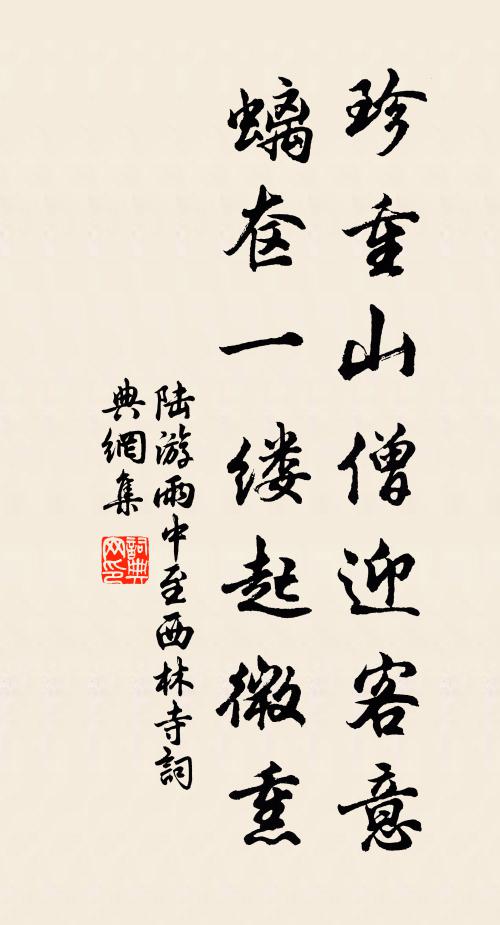 珍重山僧迎客意
螭奁一缕起微熏
陆游雨中至西林寺詞
典網集
詞典
网印